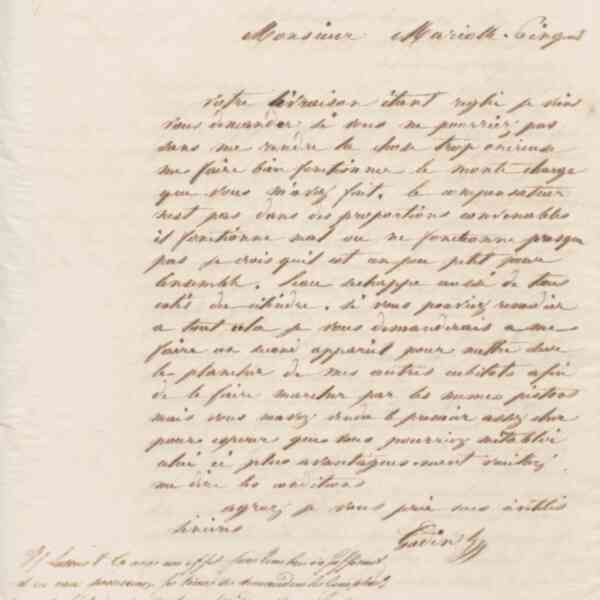 Monsieur Mariolle-Pinguet
votre livraison étant reglée je viens
vous demander si vous ne pourriez pas
sans me rendre la chose trop onéreuse
me faire bien fonctionne le monte charge
que vous m'avez fait. le compensateur
nest pas dans des proportions convenables
il fonctionne mal ou ne fonctionne presque
pas je crois quil est un peu petit pour
lensemble. leau sechappe aussi de tous
cotés du cilindre. si vous pouviez remedier
a tout cela je vous demanderais a me
faire un second appareil pour mettre dans
le plancher de mes autres
de le faire marcher par les memes pistons
mais vous mavez vendu le premier assez cher
pour esperer que vous pourriez metablir
celui ci plus avantageusement veuillez
me dire les conditions
agreez je vous prie mes civilités
sinceres